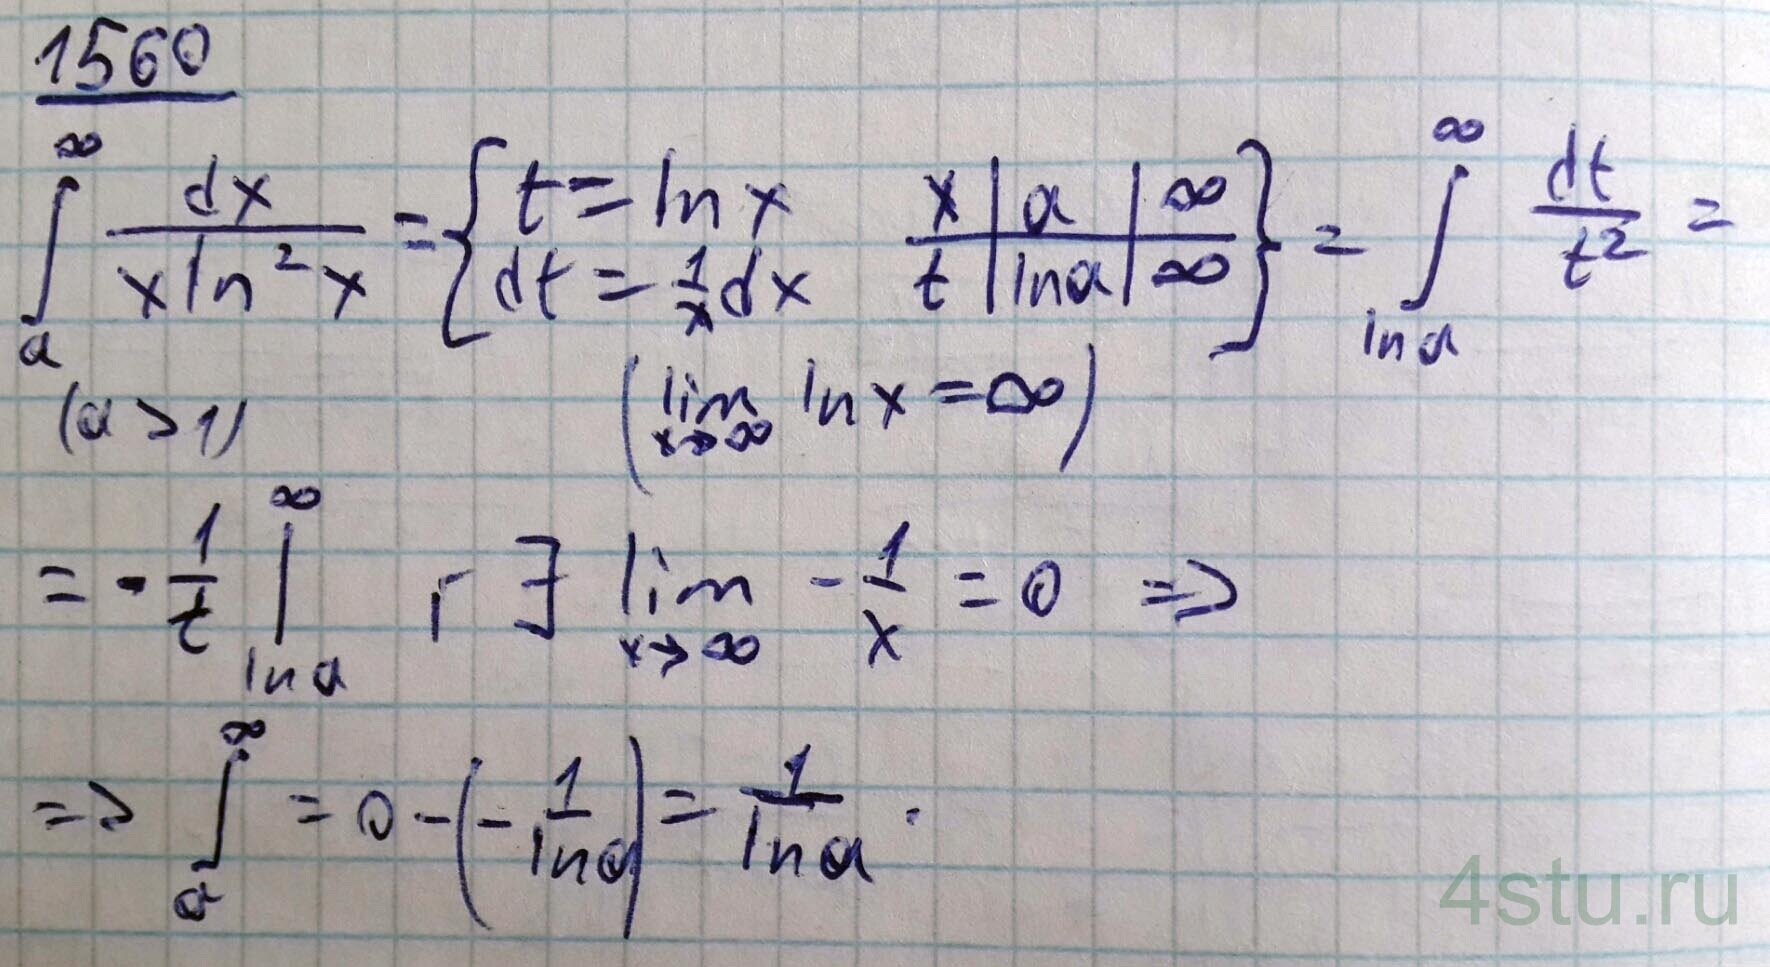 1560
∫_a^∞ dx/(x ln² x) = { t = ln x  dt = 1/x dx  x | a | ∞  t | ln a | ∞ } = ∫_{ln a}^∞ dt/t² =
(a > 1) (lim_{x→∞} ln x = ∞)
= - 1/t |_{ln a}^∞ г ∃ lim_{x→∞} - 1/x = 0 ⇒
⇒ ∫_a^∞ = 0 - (- 1/ln a) = 1/ln a .
4stu.ru